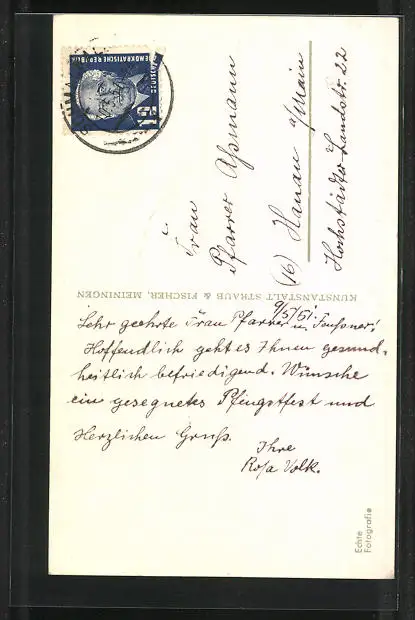 DEUTSCHE
DEMOKRATISCHE REPUBLIK
12
Frau
Pfarrer Aßmann
(16) Hanau a/Main
Hochstädter Landstr. 22
KUNSTANSTALT STRAUB & FISCHER, MEININGEN
9/5/51.
Sehr geehrte Frau Pfarrer u.
Hoffendlich geht es Ihnen gesund-
heitlich befriedigend. Wünsche
ein gesegnetes Pfingstfest und
Herzlichen Gruß.
Ihre
Rosa Volk.
Echte
Fotografie